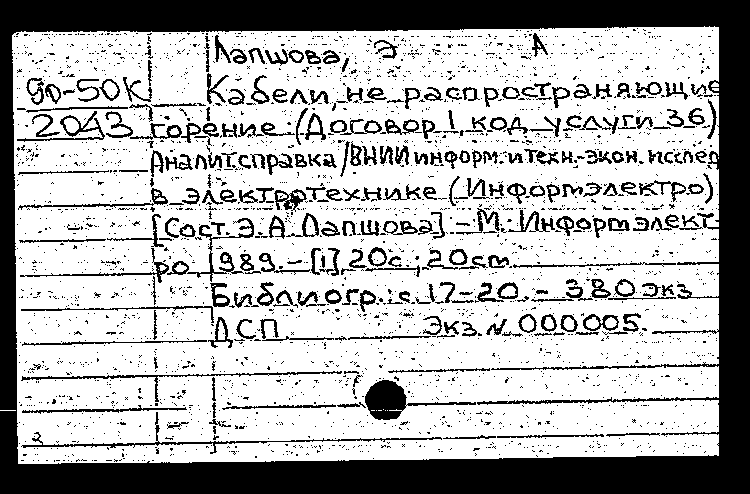 Лапшова, Э А
90-50К Кабели, не распространяющие
2043 горение: (Договор 1, код услуги 36)
Аналит. справка /ВНИИ информ. и техн.-экон. исслед
в электротехнике (Информэлектро)
[Сост. Э. А. Лапшова] – М.: Информэлект-
ро, 1989. – [1], 20с.; 20см.
Библиогр.: с. 17-20. – 380 экз
ДСП Экз. № 000005.
2